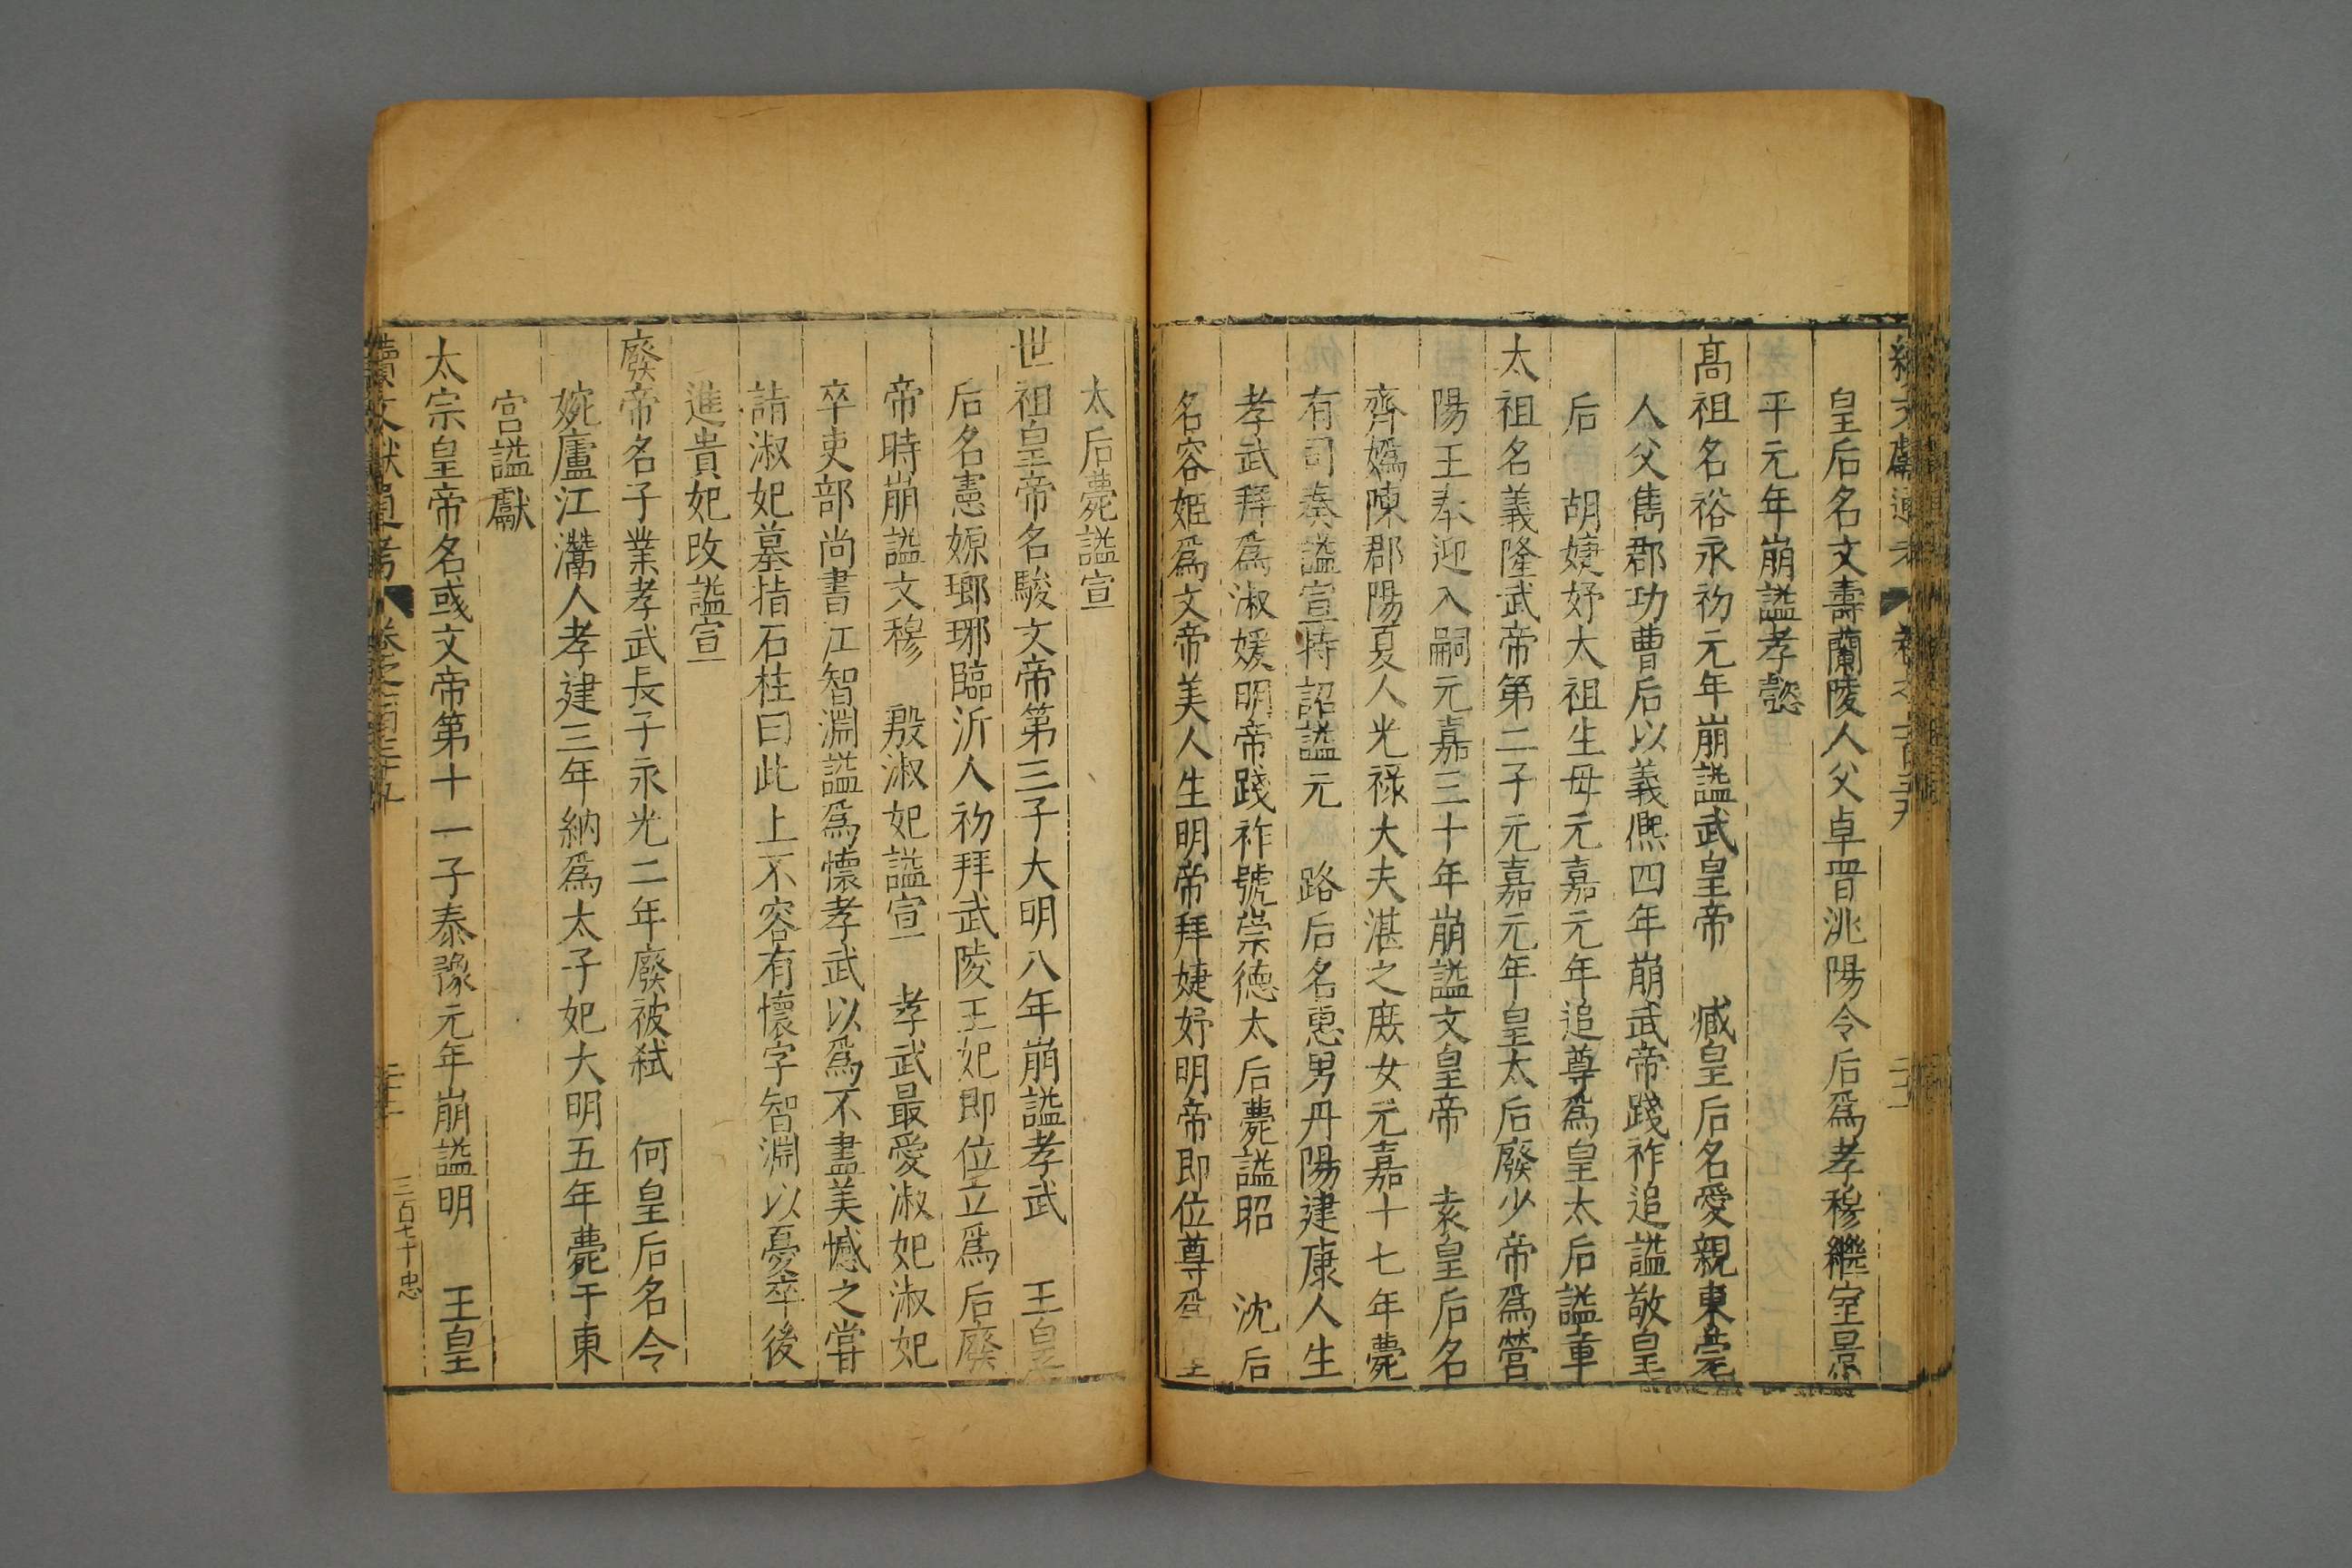 續文獻通考 卷之一百三十九 二十一
皇后名文壽蘭陵人父卓晉洮陽令后爲孝穆繼室景
平元年崩謚孝懿
高祖名裕永初元年崩謚武皇帝 臧皇后名愛親東莞
人父雋郡功曹后以義熈四年崩武帝踐祚追謚敬皇
后 胡婕妤太祖生母元嘉元年追尊爲皇太后謚章
太祖名義隆武帝第二子元嘉元年皇太后廢少帝爲營
陽王奉迎入嗣元嘉三十年崩謚文皇帝 袁皇后名
齊嬀陳郡陽夏人光祿大夫湛之庶女元嘉十七年薨
有司奏謚宣特詔謚元 路后名惠男丹陽建康人生
孝武拜爲淑媛明帝踐祚號崇德太后薨謚昭 沈后
名容姬爲文帝美人生明帝拜婕妤明帝即位尊爲皇
太后薨謚宣
世祖皇帝名駿文帝第三子大明八年崩謚孝武 王皇
后名憲嫄瑯琊臨沂人初拜武陵王妃即位立爲后廢
帝時崩謚文穆 殷淑妃謚宣 孝武最愛淑妃淑妃
卒吏部尚書江智淵謚爲懷孝武以爲不盡美憾之甞
請淑妃墓指石柱曰此上不容有懷字智淵以憂卒後
進貴妃改謚宣
廢帝名子業孝武長子永光二年廢被弑 何皇后名令
婉廬江灊人孝建三年納爲太子妃大明五年薨于東
宮謚獻
太宗皇帝名彧文帝第十一子泰豫元年崩謚明 王皇
續文獻通考 卷之一百三十九 三百七十忠